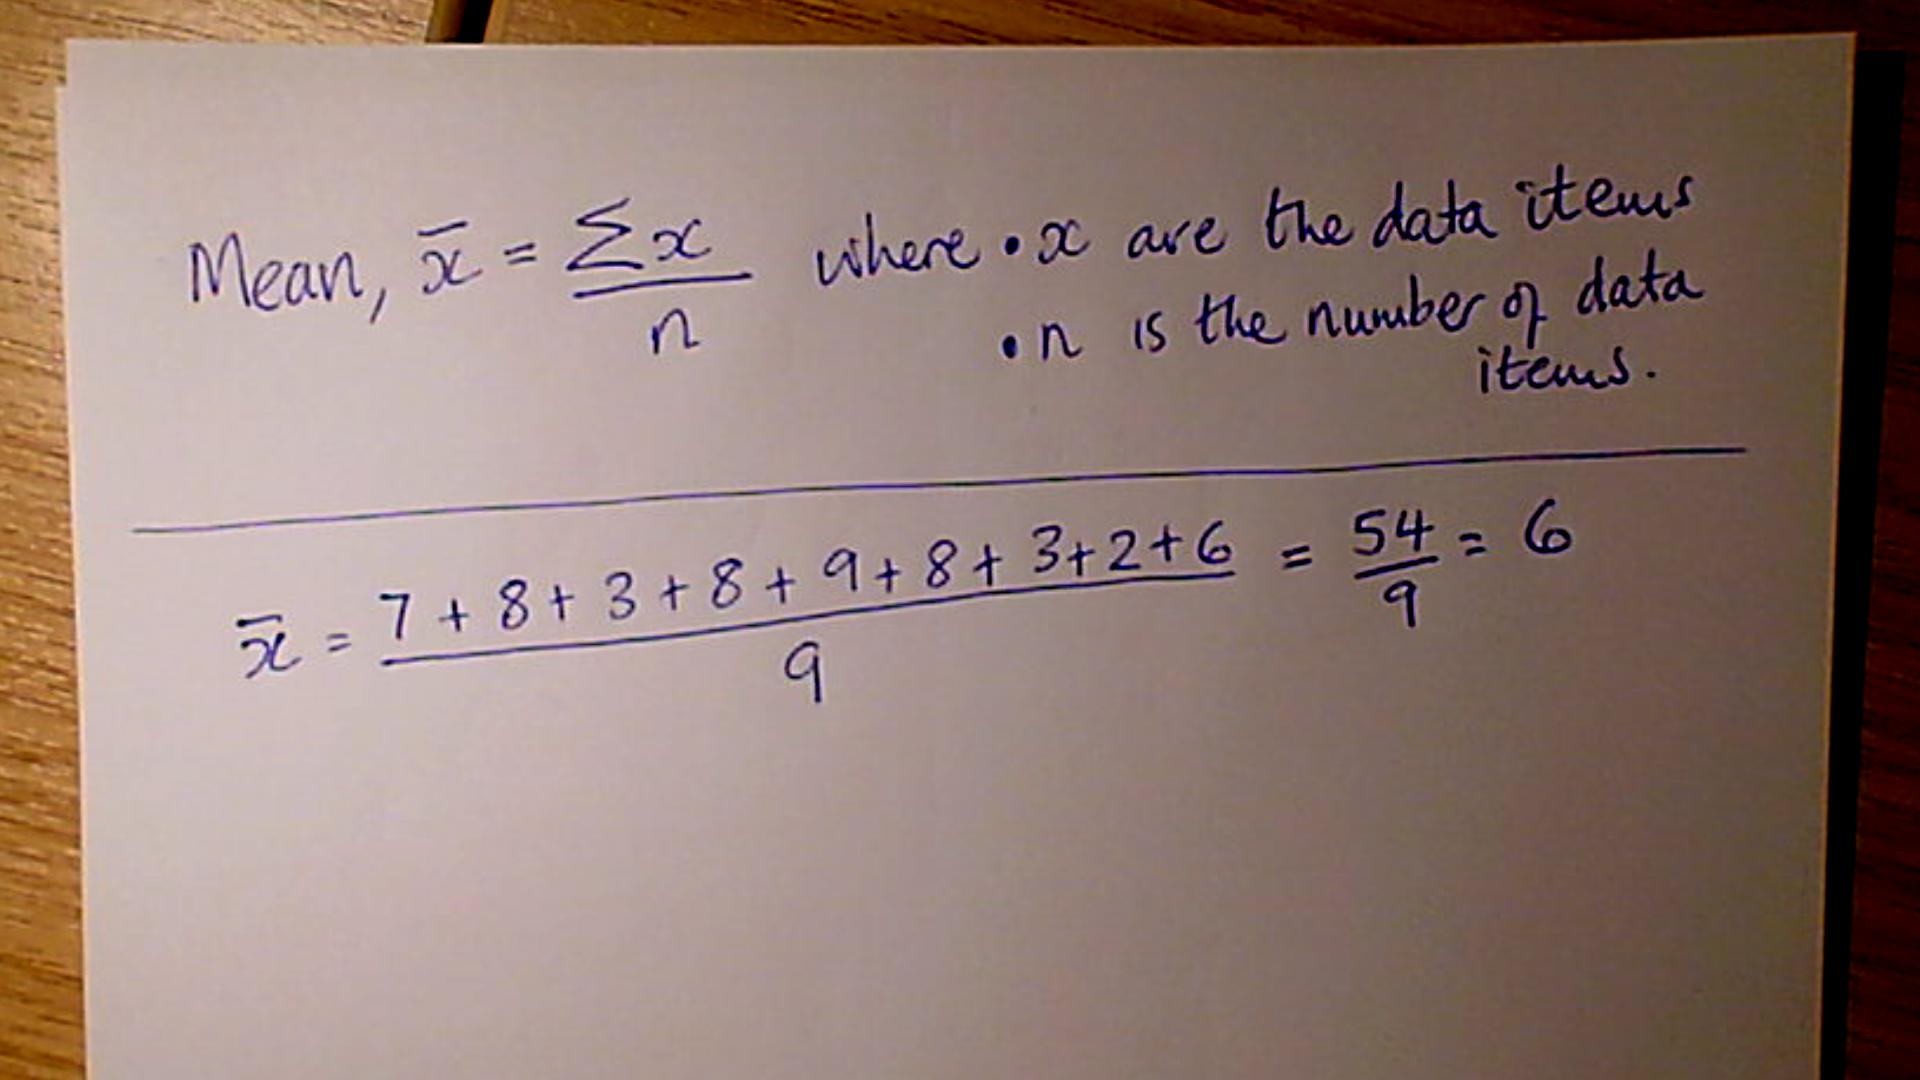 Mean, x̄ = Σx / n where • x are the data items
• n is the number of data
items.
x̄ = 7 + 8 + 3 + 8 + 9 + 8 + 3 + 2 + 6 / 9 = 54 / 9 = 6